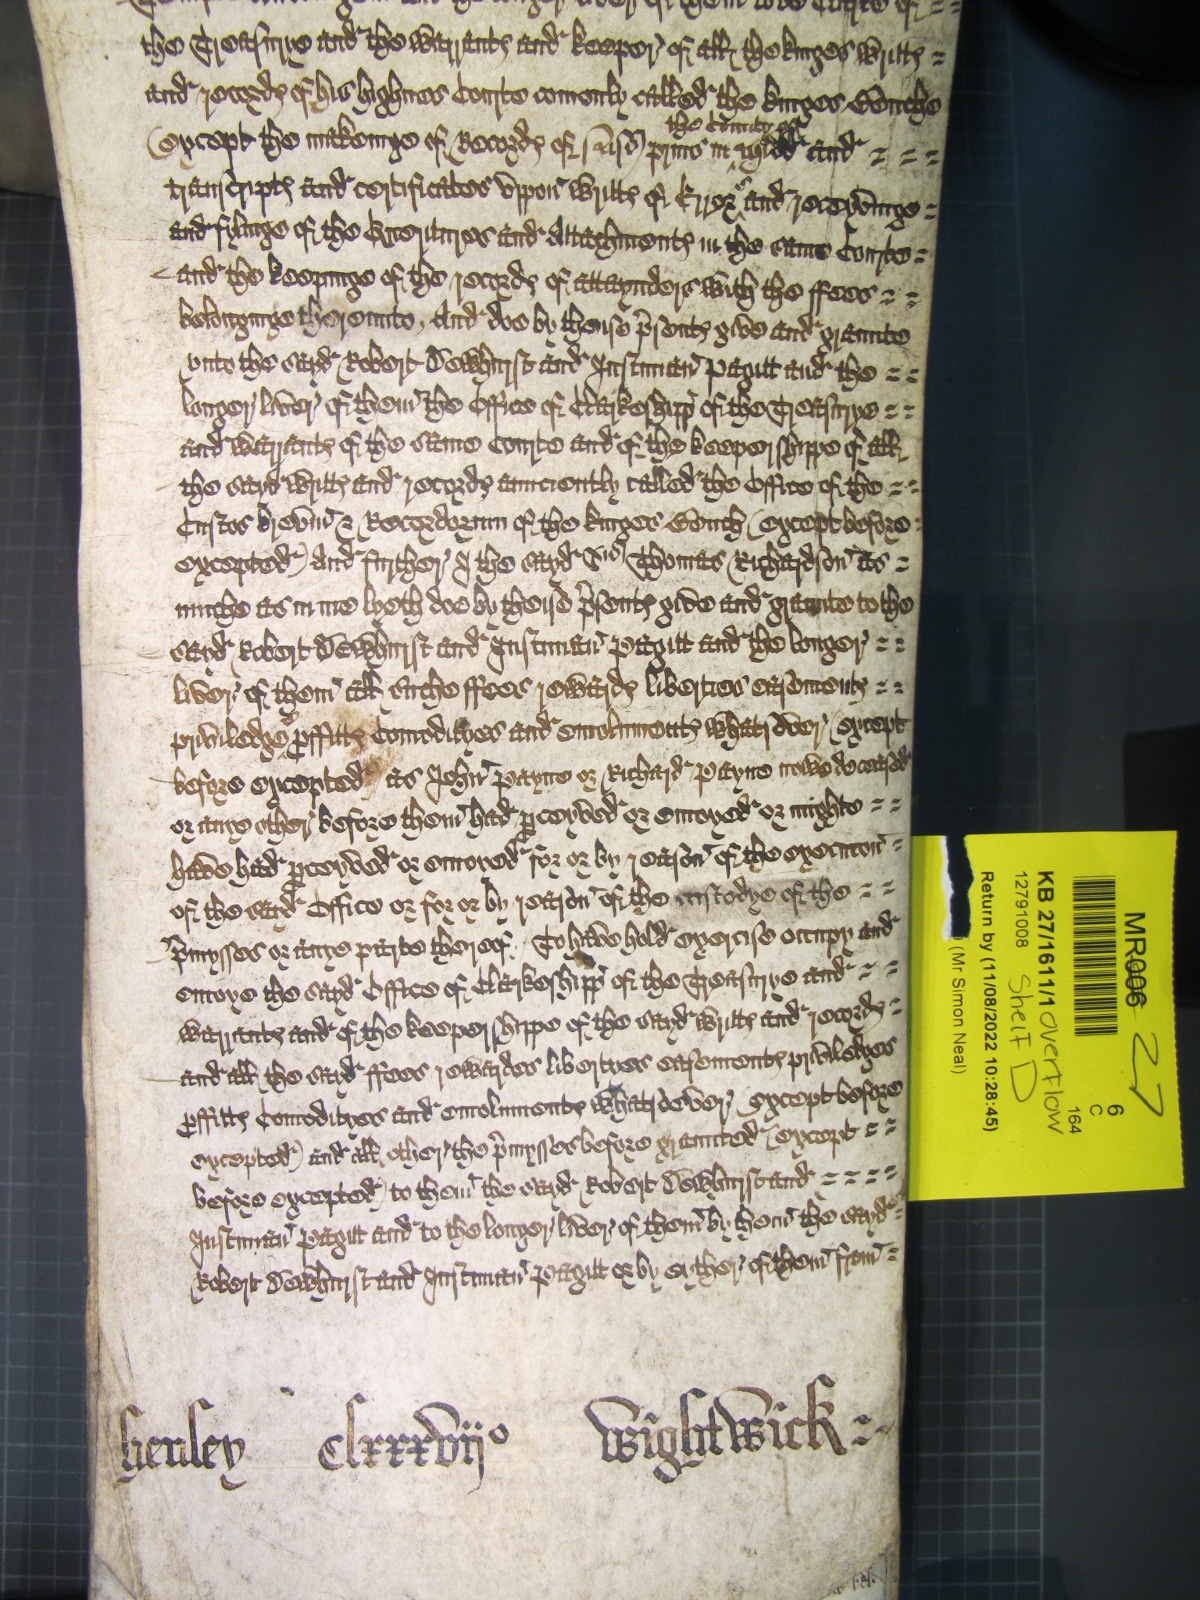 the Treasurye and the warrants and keeper of all the kinges writts
and records of his highnes Courte comonly called the kinges Benche
the county of
(except the makeinge of Records of nisi prius in Midd and
transcripts and certificates uppon writts of Error and receyvinge
and fylinge of the and Attachments in the same Courte
and the keepinge of the records of attaynders with the ffees
belonginge thereunto, And doe by theise psents give and graunte
unto the sayd Robert Dewhurst and Justinian Pagitt and the
longer liver of them the Office of Clarkeshipp of the Treasurye
and warrants of the same Courte and of the keepershippe of all
the sayd writts and records aunciently called the Office of the
Custos brevium & Recordorum of the kinges Bench (except before
excepted) And further I the sayd Sr Thomas Richardson as
muche as in me lyeth doe by theise psents give and graunte to the
sayd Robert Dewhurst and Justinian Pagitt and the longer
liver of them all suche ffees rewards liberties easements
priviledges pffitts Comodityes and emoluments whatsoever (except
before excepted) as John Payne or Richard Payne nowe deceased
or anye other before them had pceyved or enioyed or mighte
have had pceyved or enioyed for or by reason of the execucon
of the sayd Office or for or by reason of the custodye of the
pmysses or anye parte thereof. To have hold exercise occupy and
enioye the sayd Office of Clarkeshipp of the Treasurye and
warrants and of the keepershippe of the sayd writts and records
and all the sayd ffees rewardes libertyes easements priviledges
pffitts Comodityes and emoluments whatsoever (except before
excepted) and all other the pmysses before graunted (except
before excepted) to them the sayd Robert Dewhurst and
Justinian Pagitt and to the longer liver of them by them the sayd
Robert Dewhurst and Justinian Pagitt or by eyther of them from
henley clxxxviijo Wightwick
MR006 27
6
C
164
KB 27/1611/1 overflow
12791008 Shelf D
Return by (11/08/2022 10:28:45)
(Mr Simon Neal)